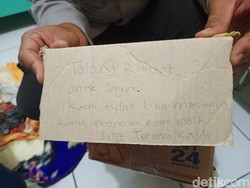 Tolong Rawat
anak Saya
kami tidak bisa merawat
karna ekonomi kami
Terima kasih
24
detikcom